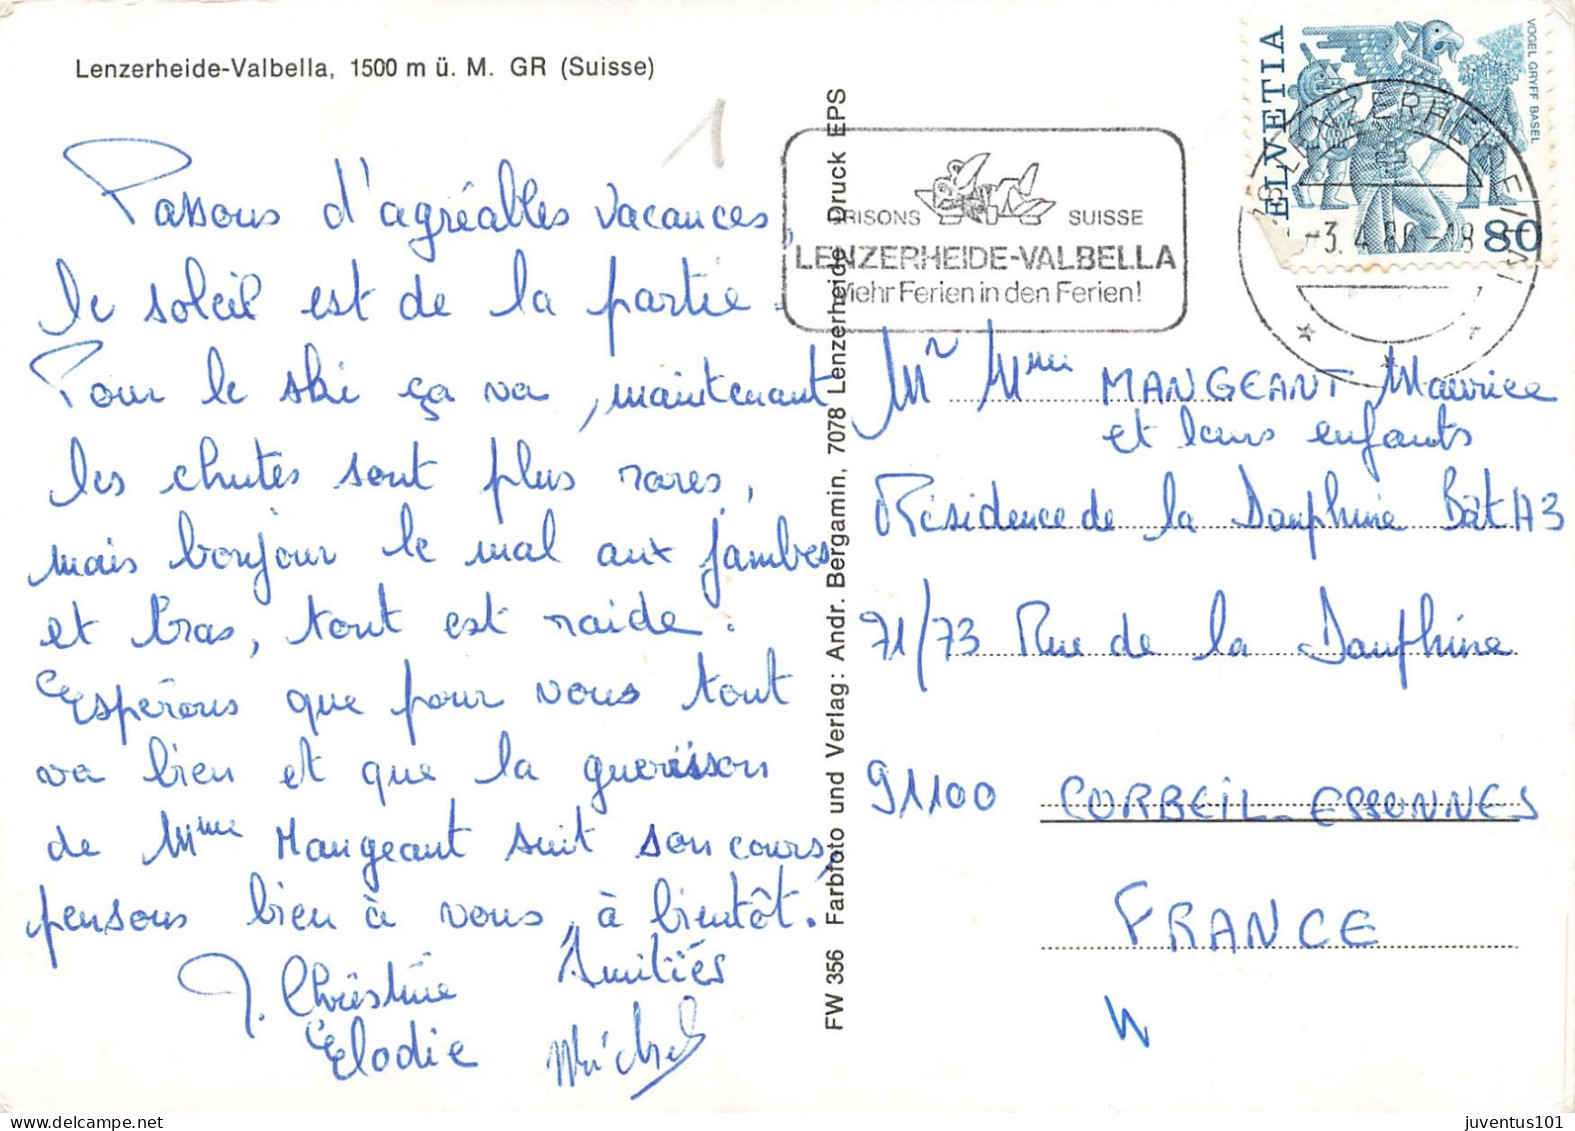 Lenzerheide-Valbella, 1500 m ü. M. GR (Suisse)
1
Passons d'agréables vacances,
le soleil est de la partie.
Pour le ski ça va, maintenant
les chutes sont plus rares,
mais bonjour le mal aux jambes
et bras, tout est raide.
Espérons que pour vous tout
va bien et que la guerisson
de Mme Mangeant suit son cours,
pensons bien à vous, à bientôt.
Amitiés
J. Christine
Elodie Michel
FW 356 Farbfoto und Verlag: Andr. Bergamin, 7078 Lenzerheide Druck EPS
GRISONS SUISSE
LENZERHEIDE-VALBELLA
Mehr Ferien in den Ferien!
HELVETIA
VOGEL GRYFF BASEL
80
LENZERHEIDE/LAI
-3.4.86-18
Mr Mme MANGEANT Maurice
et leurs enfants
Résidence de la Dauphine Bât A3
71/73 Rue de la Dauphine
91100 CORBEIL-ESSONNES
FRANCE
delcampe.net
juventus101